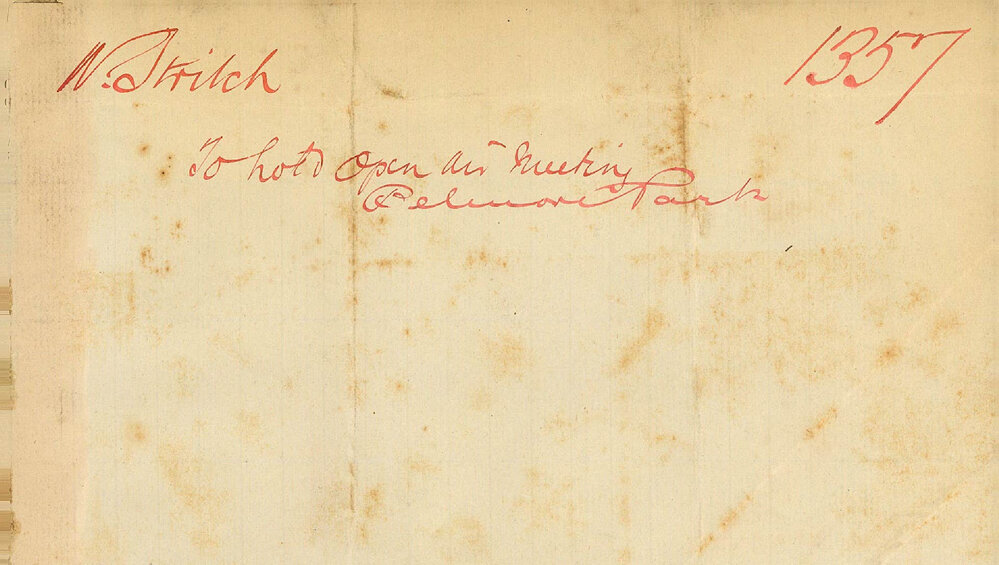 W. Stritch
1357
To hold Open Air Meeting
Belmore Park